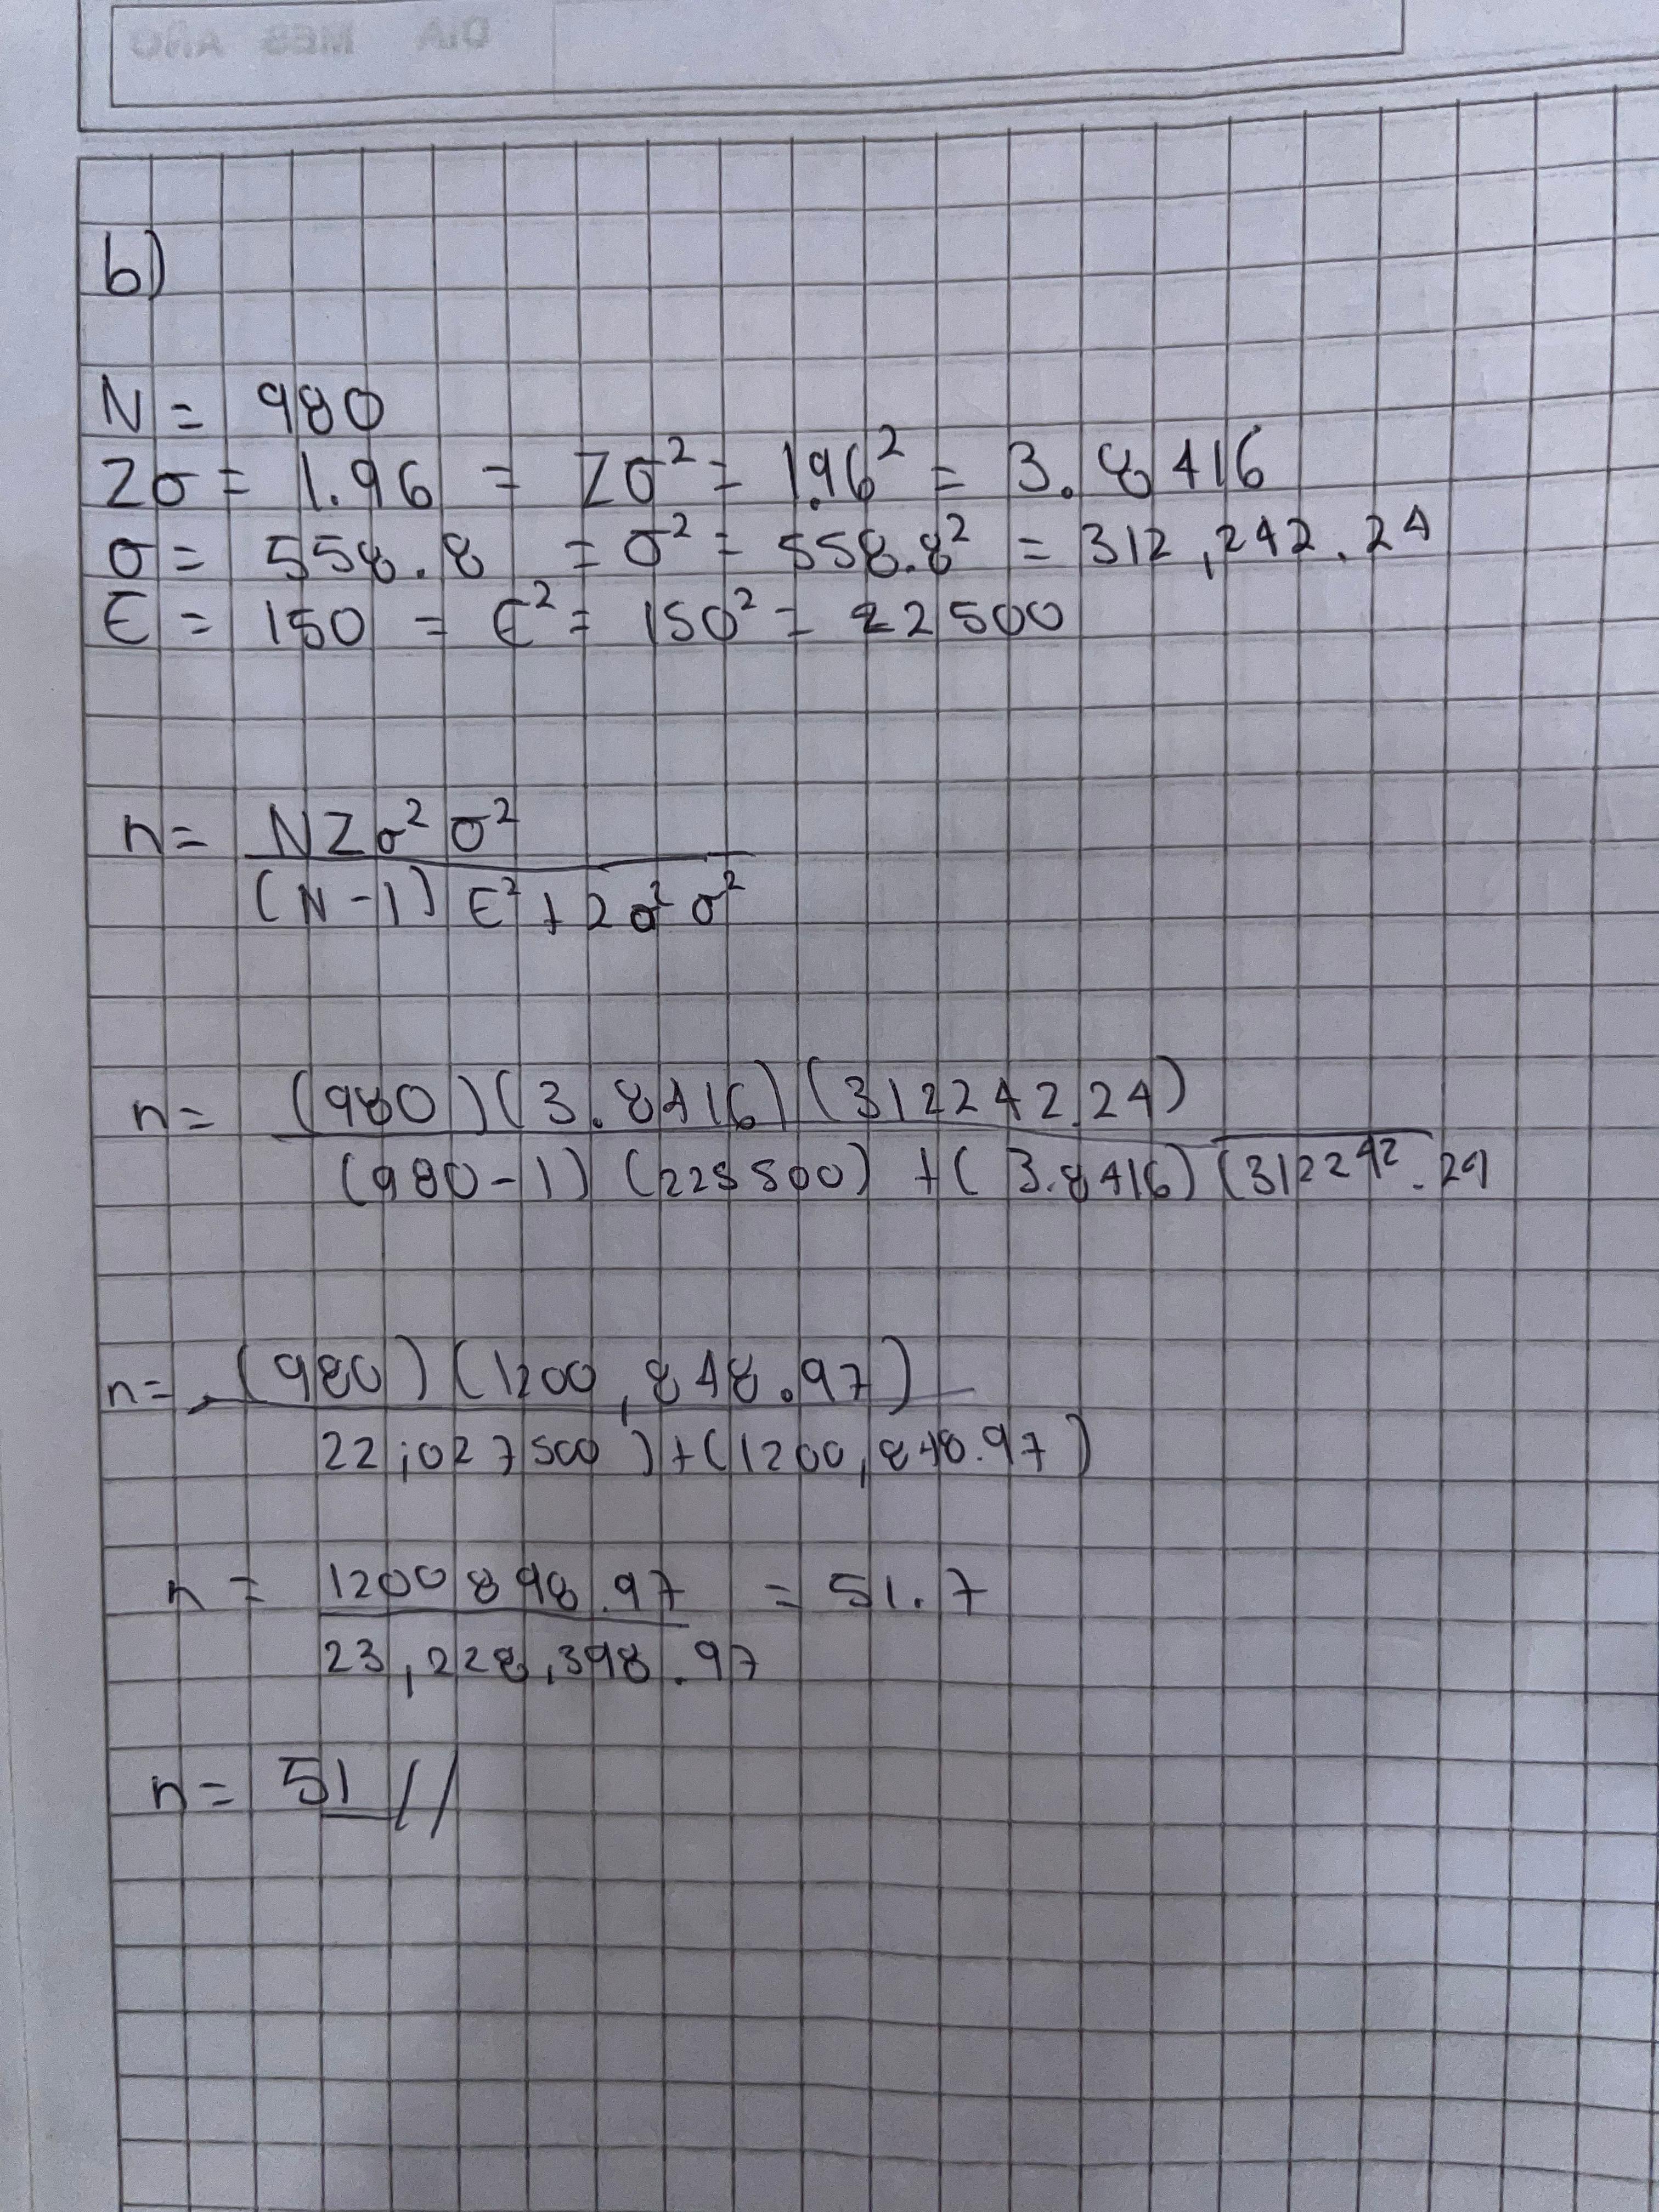 DIA MES AÑO
b)
N = 980
Zσ = 1.96 = Zσ² = 1.96² = 3.8416
σ = 558.8 = σ² = 558.8² = 312,242.24
E = 150 = E² = 150² = 22500
n = NZσ² σ²
(N-1) E² + Zσ² σ²
n = (980)(3.8416)(312242.24)
(980-1) (225500) + (3.8416)(312242.24
n = (980)(1200,848.97)
22,027500) + (1200,848.97)
n = 1200898.97 = 51.7
23,228,398.97
n = 51 //